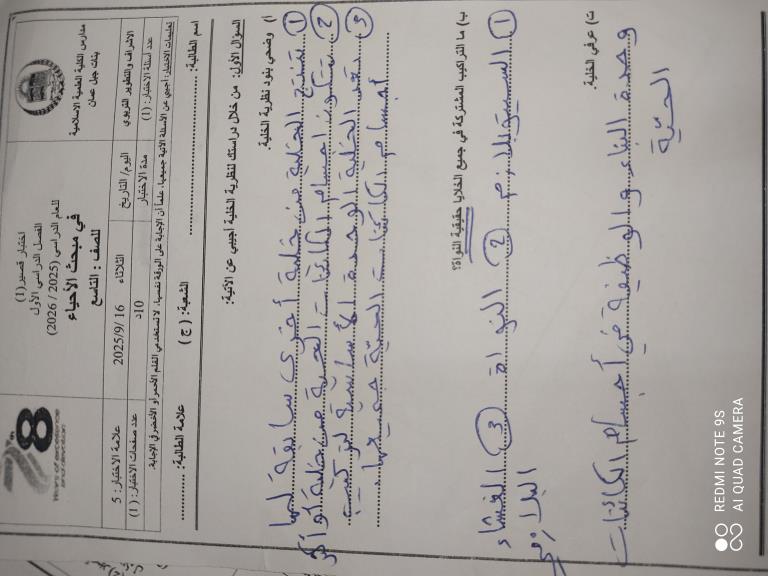 مدارس الكلية العلمية الاسلامية
بنات جبل عمان
اختبار قصير (1)
الفصل الدراسي الأول
للعام الدراسي (2025 / 2026)
في مبحث الأحياء
للصف : التاسع
78
Years of excellence
and devotion
الاشراف والتطوير التربوي
اليوم/ التاريخ
الثلاثاء 2025/9/16
علامة الاختبار: 5
عدد أسئلة الاختبار: (1)
مدة الاختبار
10د
عدد صفحات الاختبار: (1)
تعليمات الاختبار: اجيبي عن الأسئلة الآتية جميعها، علماً أن الإجابة على الورقة نفسها. لا تستخدمي القلم الأحمر أو الأخضر في الإجابة.
اسم الطالبة: الشعبة: ( ج ) علامة الطالبة:
السؤال الأول: من خلال دراستك لنظرية الخلية أجيبي عن الآتية:
أ) وضحي بنود نظرية الخلية.
① تنتج الخلية من خلية أخرى سابقة لها
② تتكون أجسام الكائنات الحية من خلية أو أكثر
③ تعد الخلية الوحدة الأساسية لتركيب
أجسام الكائنات الحية جميعها.
ب) ما التراكيب المشتركة في جميع الخلايا حقيقية النواة؟
① السيتوبلازم ② النواة ③ الغشاء
البلازمي
ت) عرفي الخلية.
وحدة البناء والوظيفة في أجسام الكائنات
الحية
REDMI NOTE 9S
AI QUAD CAMERA